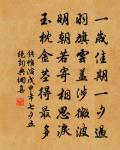 一歲佳期一夕過
羽旗雲蓋涉微波
明朝若寄相思淚
玉枕金莖得最多
錢惟演戊申年七夕五
絕詞典網集